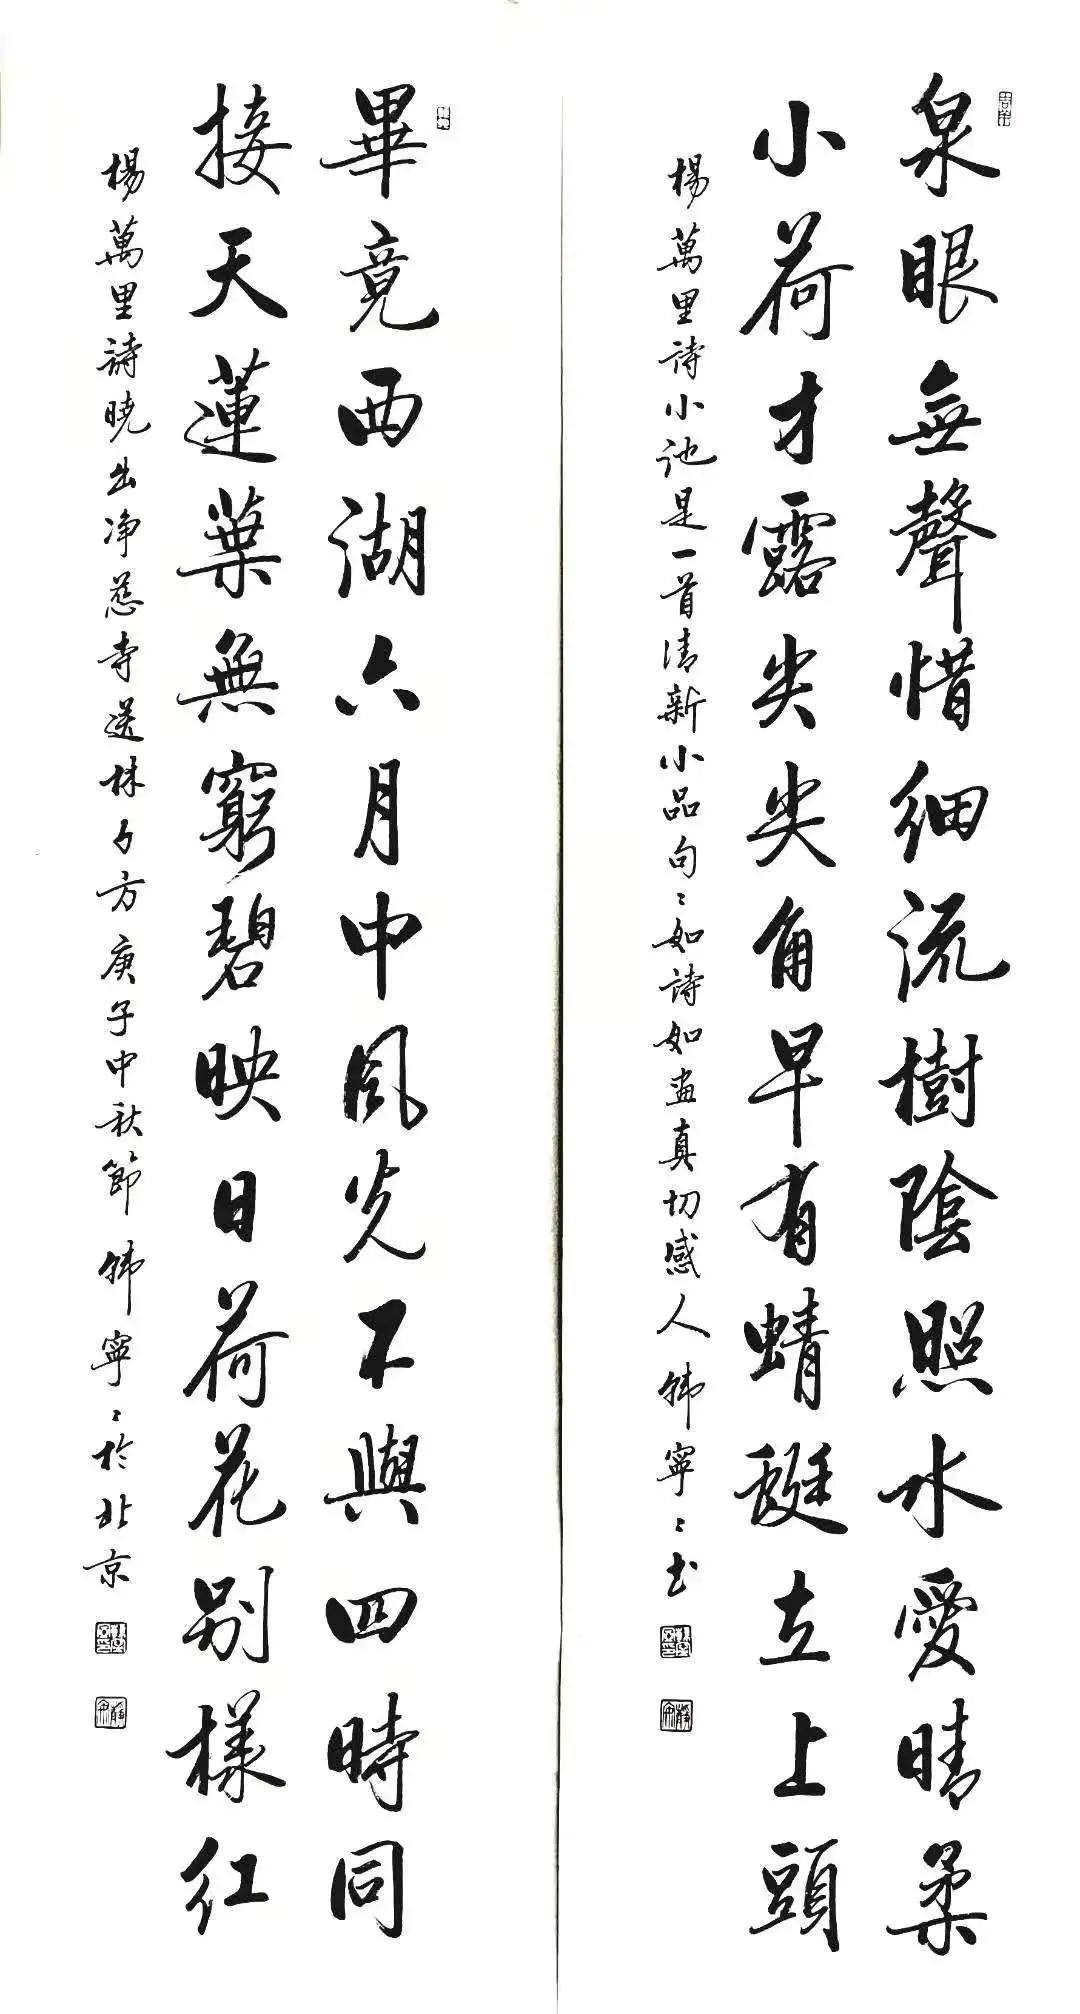 泉眼無聲惜細流樹陰照水愛晴柔
小荷才露尖尖角早有蜻蜓立上頭
楊萬里詩小池是一首清新小品句〻如詩如畫真切感人韩寧〻书
畢竟西湖六月中風光不與四時同
接天蓮葉無窮碧映日荷花别樣紅
楊萬里詩曉出净慈寺送林子方庚子中秋節韩寧〻於北京